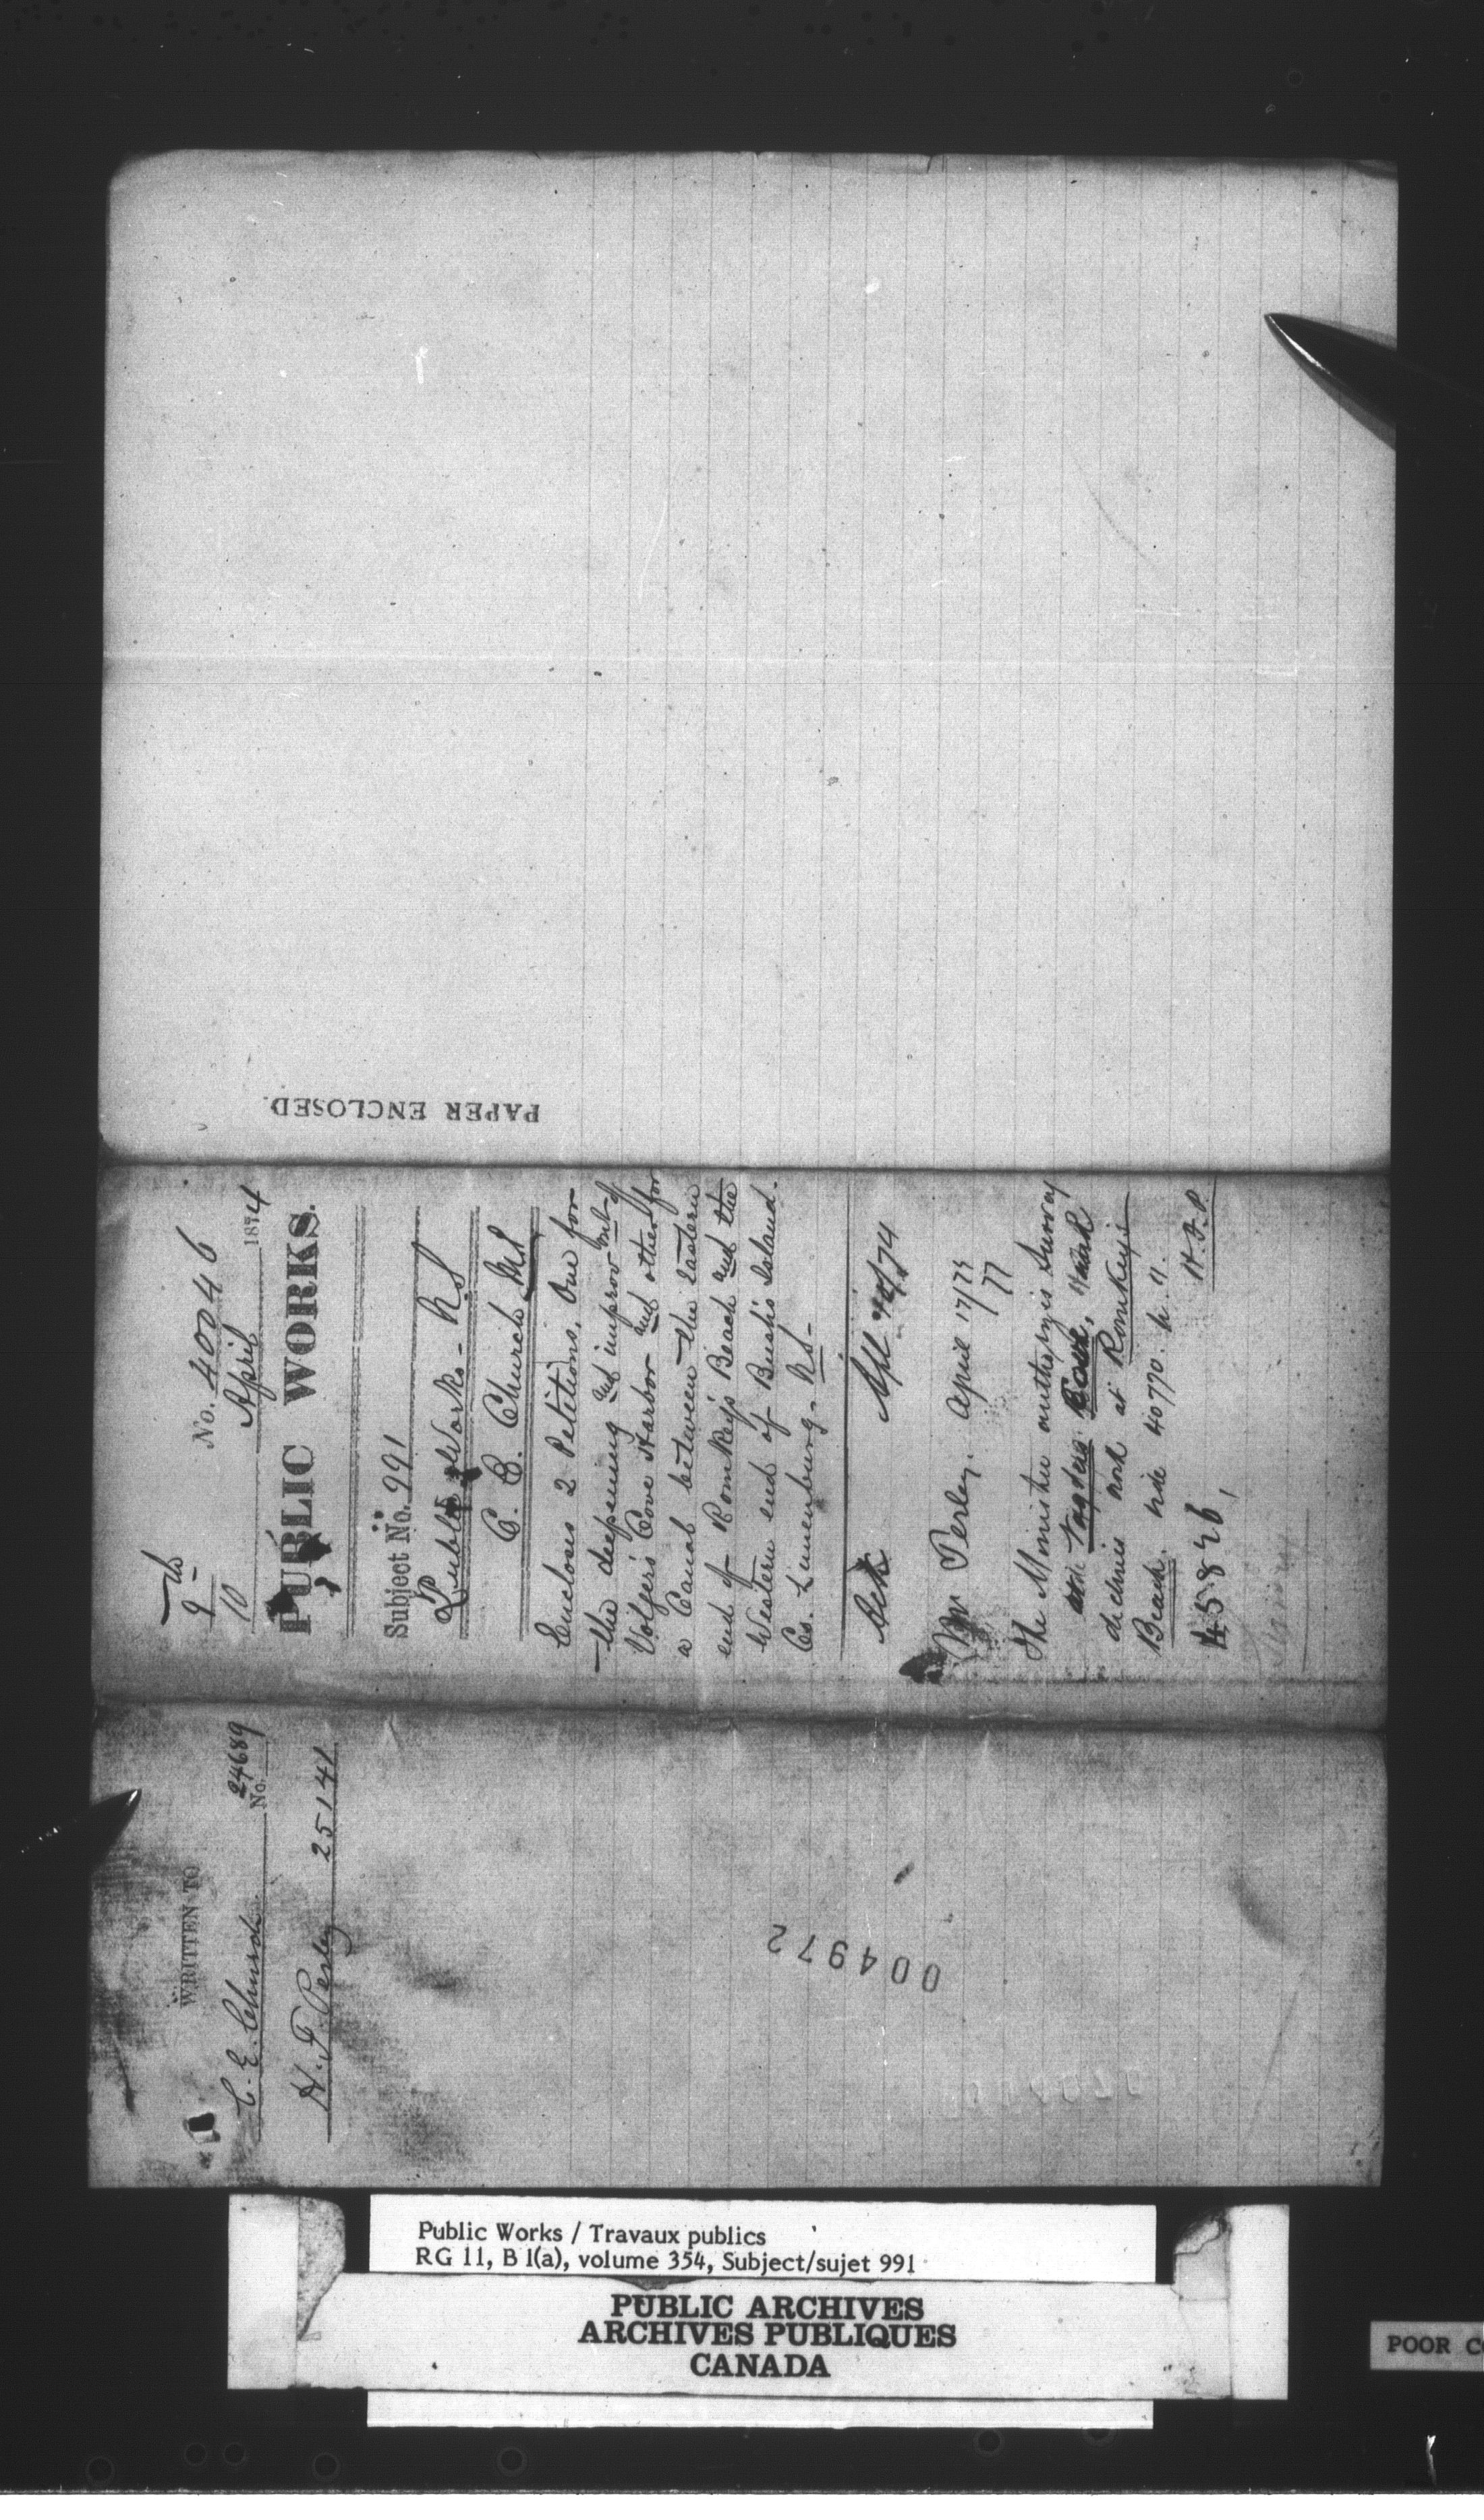 PAPER ENCLOSED.
9
10
No. 40046
April 1874
PUBLIC WORKS.
Subject No. 991
Public Works - N.S
C. E. Church MP
Encloses 2 Petitions, One for
the deepening and improvmt of
Volger's Cove Harbor and other for
a Canal between the Eastern
end of Romkey's Beach and the
Western end of Bush's Island.
Co. Lunenburg. NS-
Ack Apl /74
Mr Perley. April 17/74
77
The Minister authorizes Survey
at
dechnis work at Romkey's
Beach. vide 40770.
H.F.P
45826,
WRITTEN TO
No. 24689
C. E. Church
H. F. Perley 25141
004972
Public Works / Travaux publics
RG 11, B 1(a), volume 354, Subject/sujet 991
PUBLIC ARCHIVES
ARCHIVES PUBLIQUES
CANADA
POOR C